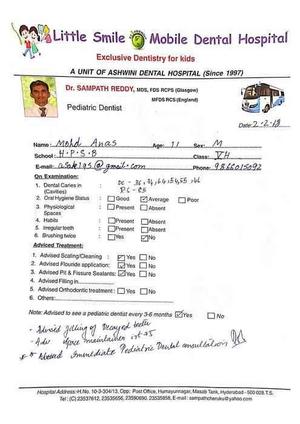 Little Smile Mobile Dental Hospital
Exclusive Dentistry for kids
A UNIT OF ASHWINI DENTAL HOSPITAL (Since 1997)
Dr. SAMPATH REDDY, MDS, FDS RCPS (Glasgow)
MFDS RCS (England)
Pediatric Dentist
Date: 2-2-18
Name: Mohd Anas Age: 11 Sex: M
School: H.P.S.B Class: VH
E-mail: @gmail.com Phone: 9866015092
On Examination:
1. Dental Caries in (Cavities)
2. Oral Hygiene Status : Good Average Poor
3. Physiological Spaces : Present Absent
4. Habits : Present Absent
5. Irregular teeth : Present Absent
6. Brushing twice : Yes No
Advised Treatment:
1. Advised Scaling/Cleaning : Yes No
2. Advised Flouride application: Yes No
3. Advised Pit & Fissure Sealants: Yes No
4. Advised Filling in
5. Advised Orthodontic treatment : Yes No
6. Others:
Note: Advised to see a pediatric dentist every 3-6 months Yes No
- Advised filling of Decayed teeth
- Adv space maintainer
* Advised Immediate Pediatric Dental consultation
Hospital Address: H.No. 10-3-304/13, Opp: Post Office, Humayunnagar, Masab Tank, Hyderabad - 500 028 T.S.
Tel: (C) 23537612, 23535656, 23590690, 23535858, E-mail: sampathcheruku@yahoo.com